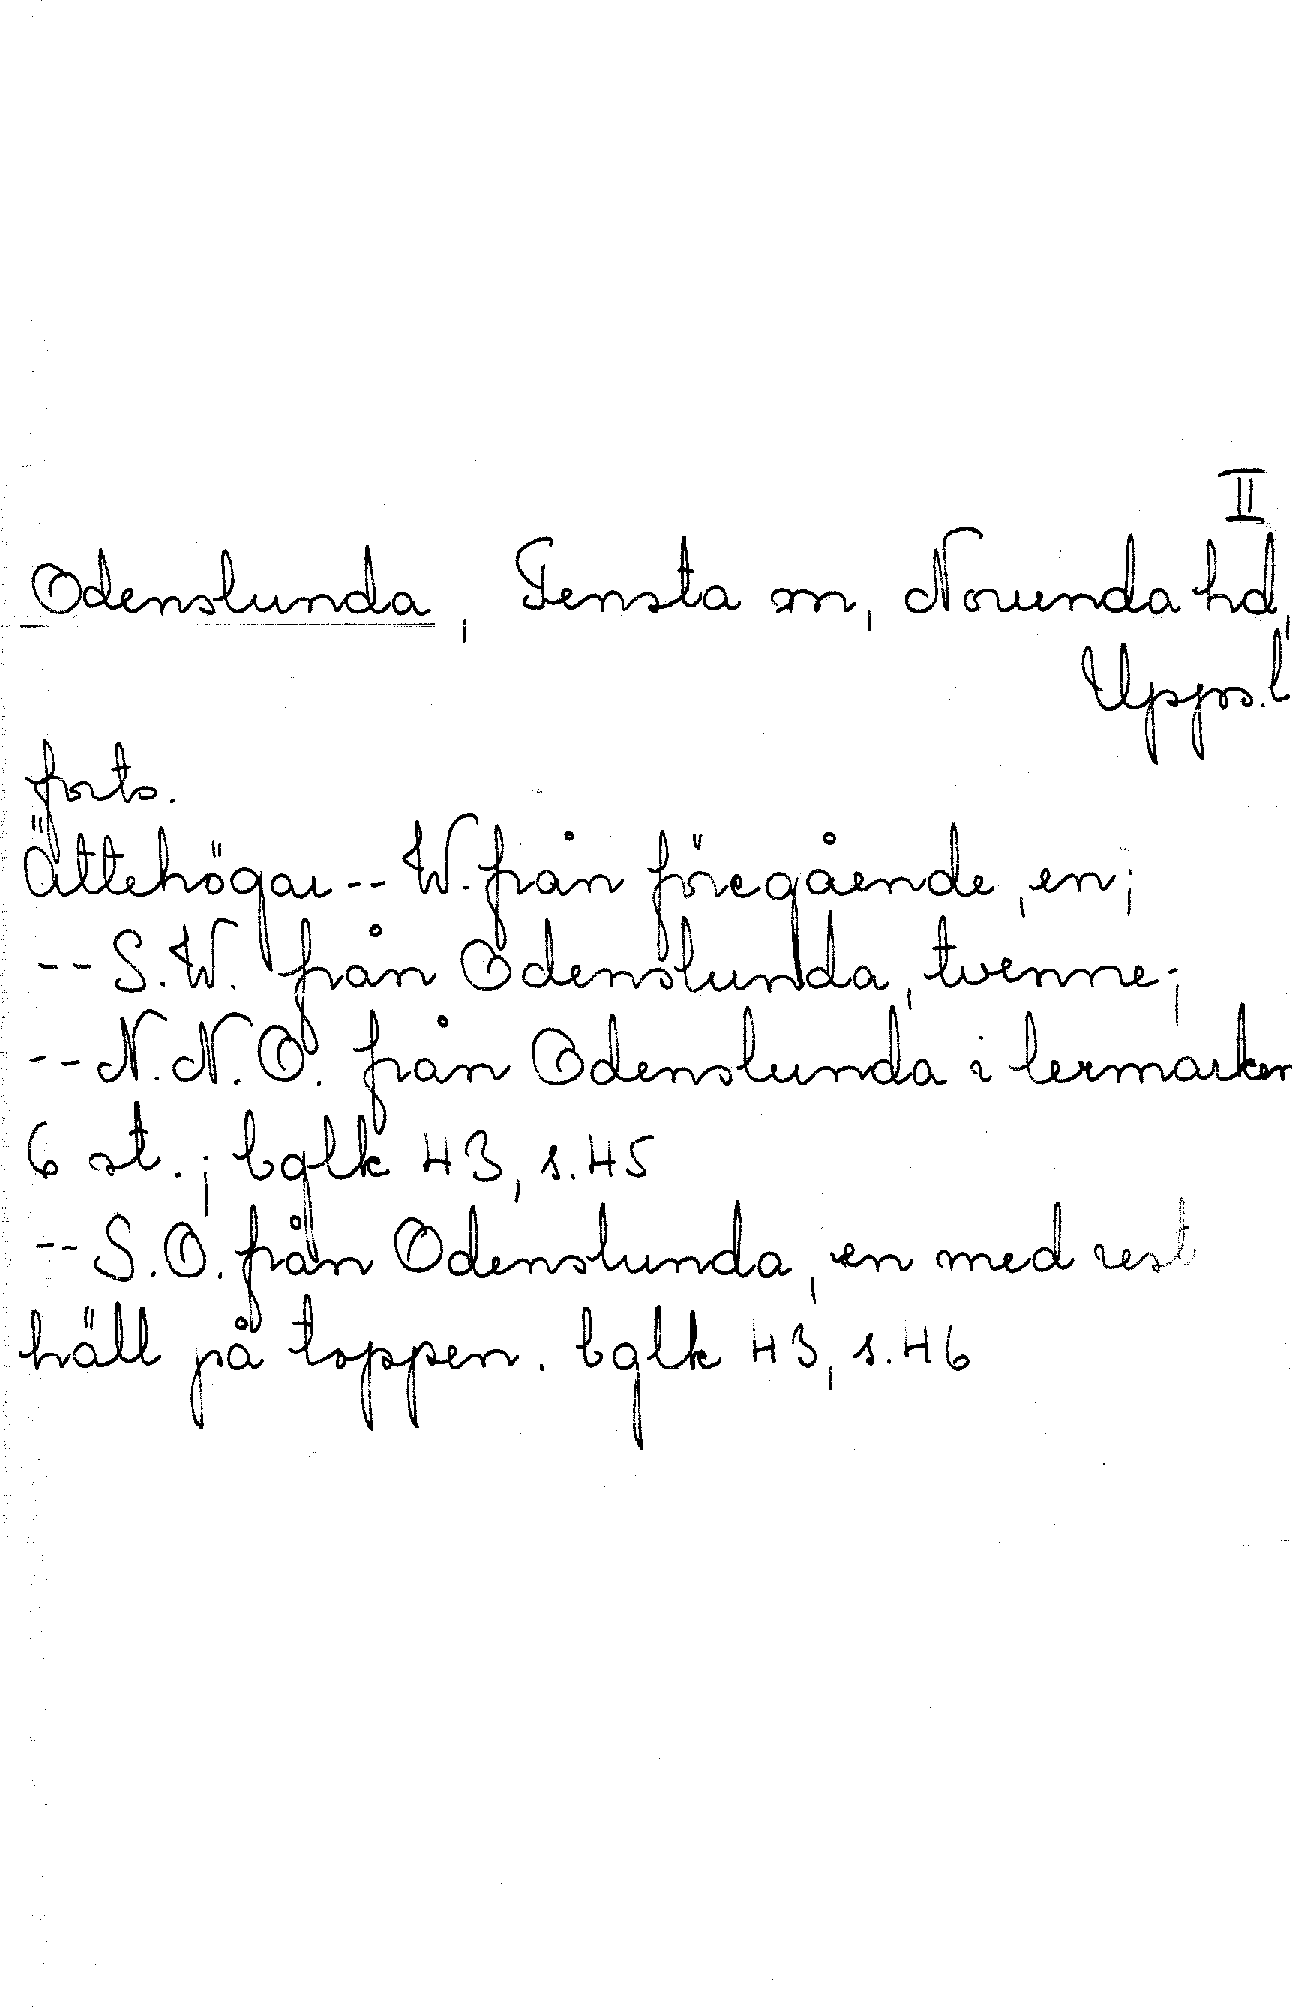 II
Odenslunda, Tensta sn, Norunda hd,
Upps.l
forts.
Ättehögar -- W. från föregående, en;
-- S.W. från Odenslunda, tvenne;
-- N.N.O. från Odenslunda i lermarken
6 st.; bglk 43, s.45
-- S.O. från Odenslunda, en med rest
häll på toppen. bglk 43, s.46